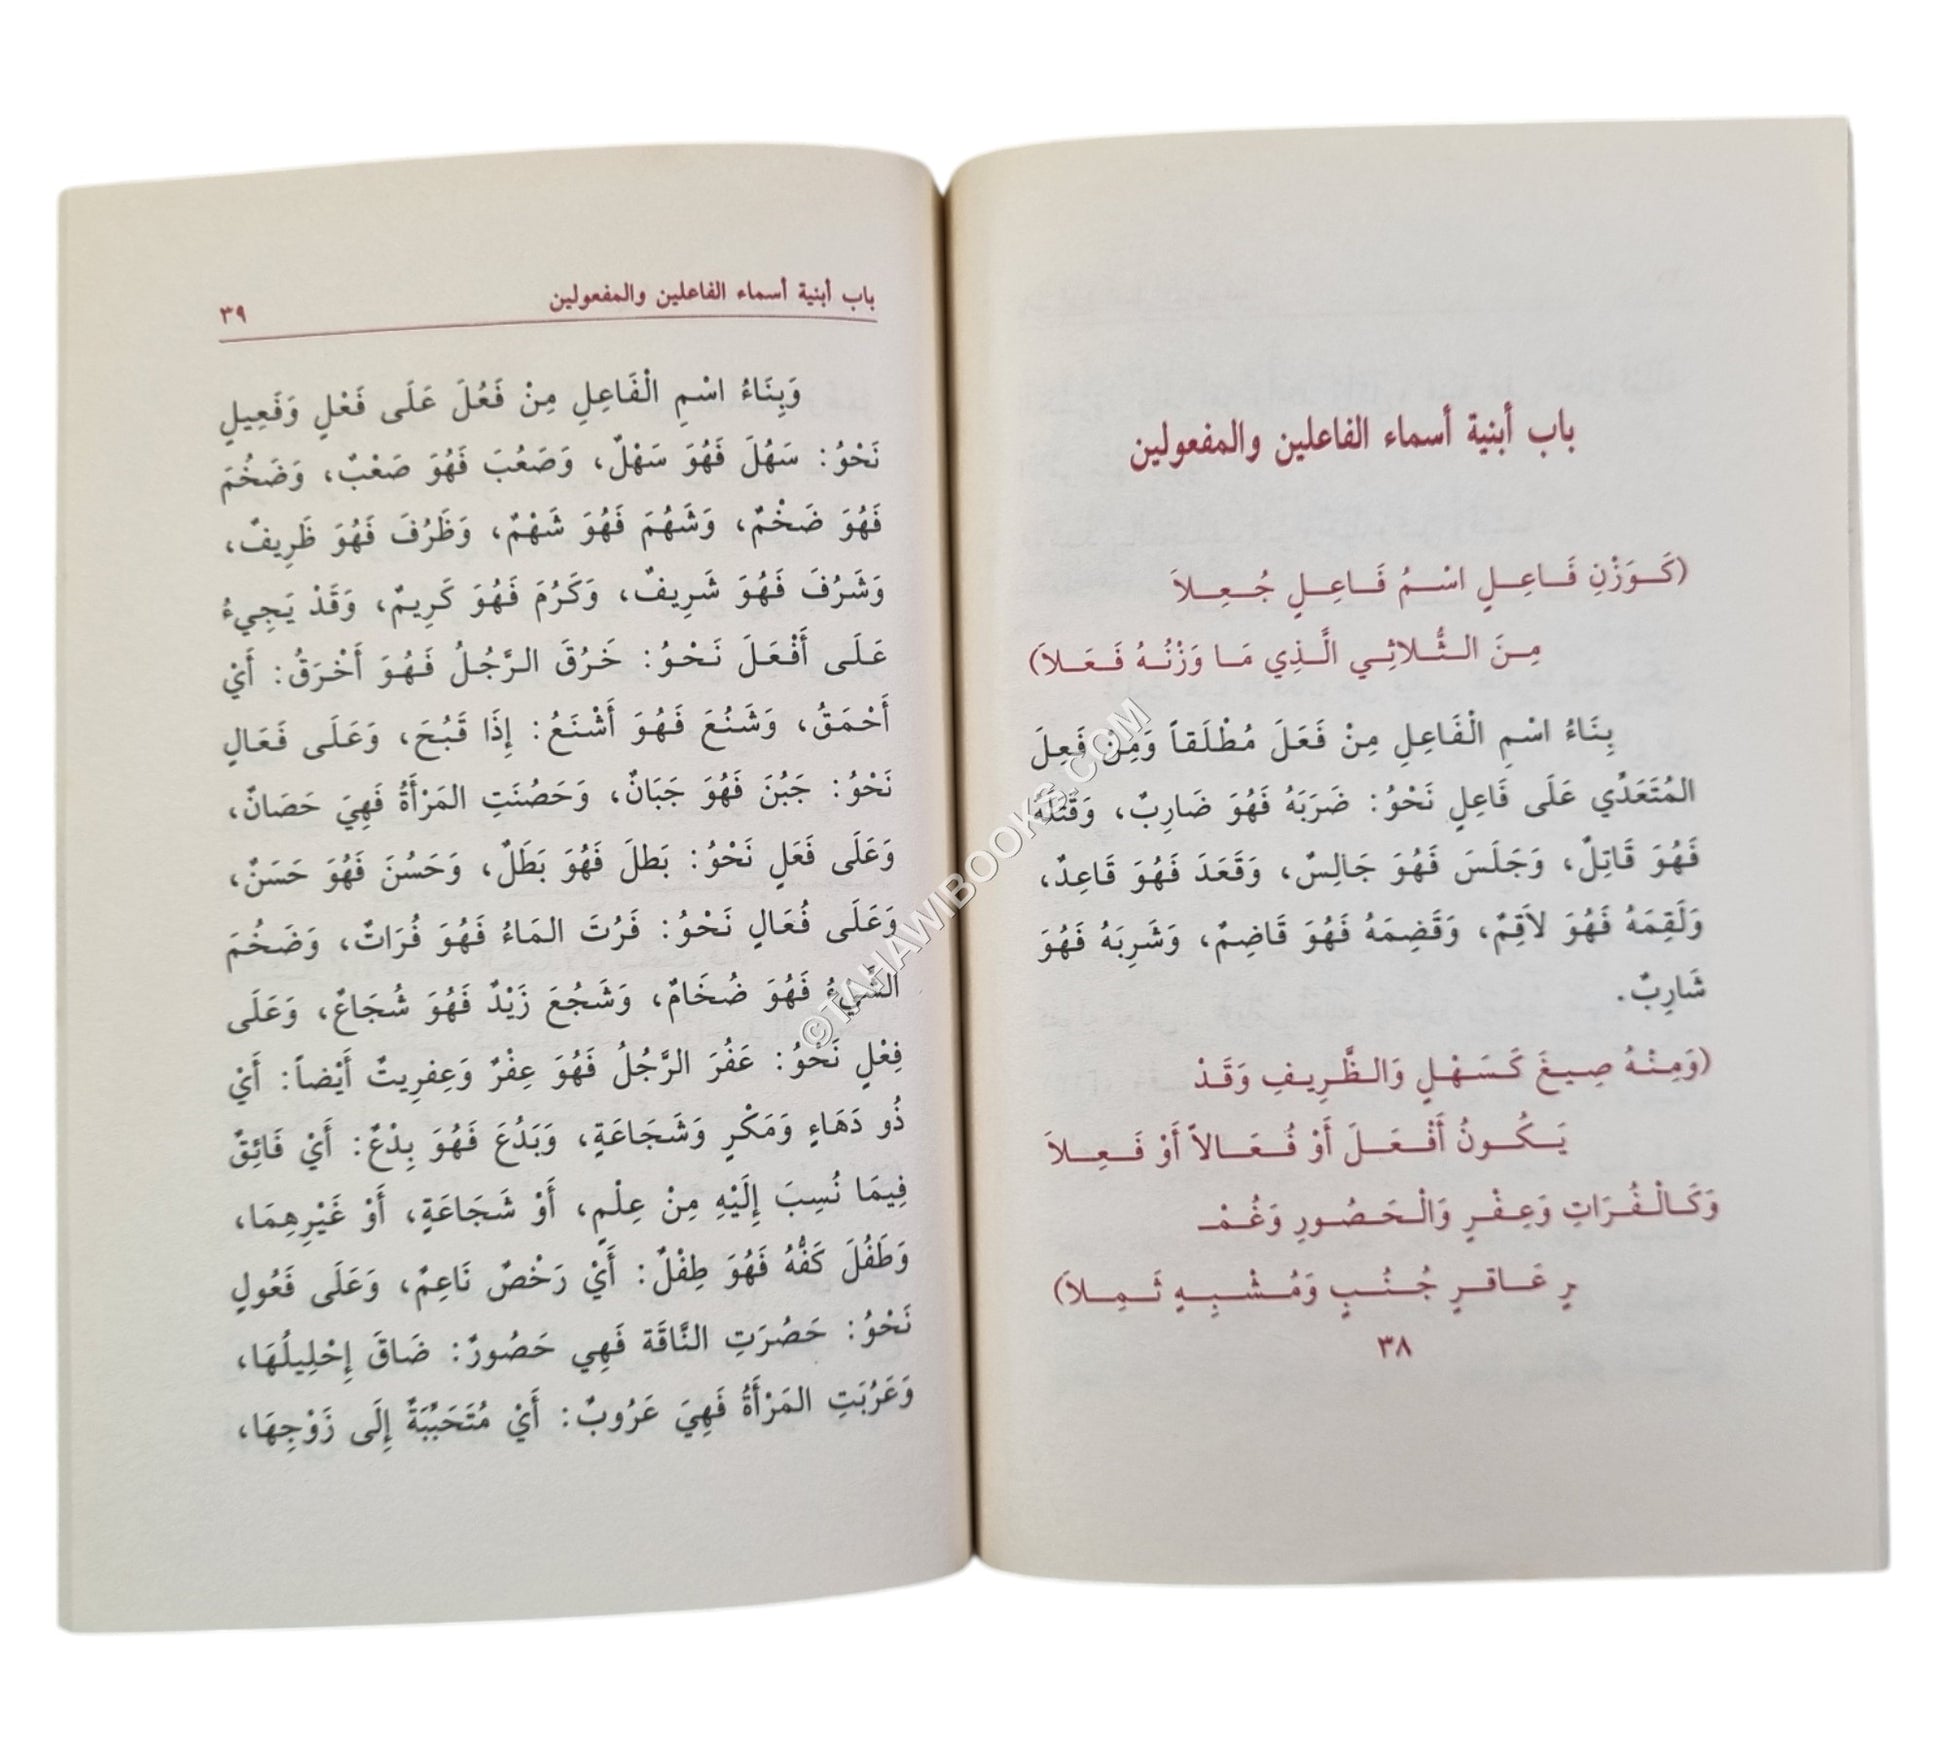 باب أبنية أسماء الفاعلين والمفعولين
(كَـوَزْنِ فَـاعِـلٍ اسْـمُ فَـاعِـلٍ جُـعِـلاَ
مِـنَ الـثُّـلاثِـي الَّـذِي مَـا وَزْنُـهُ فَـعَـلاَ)
بِنَاءُ اسْمِ الْفَاعِلِ مِنْ فَعَلَ مُطْلَقاً وَمِنْ فَعِلَ
المُتَعَدِّي عَلَى فَاعِلٍ نَحْوُ: ضَرَبَهُ فَهُوَ ضَارِبٌ، وَقَتَلَهُ
فَهُوَ قَاتِلٌ، وَجَلَسَ فَهُوَ جَالِسٌ، وَقَعَدَ فَهُوَ قَاعِدٌ،
وَلَقِمَهُ فَهُوَ لاَقِمٌ، وَقَضِمَهُ فَهُوَ قَاضِمٌ، وَشَرِبَهُ فَهُوَ
شَارِبٌ.
(وَمِـنْـهُ صِـيـغَ كَـسَـهْـلٍ وَالـظَّـرِيـفِ وَقَـدْ
يَـكُـونُ أَفْـعَـلَ أَوْ فُـعَـالاً أَوْ فَـعِـلاَ
وَكَـالْـفُـرَاتِ وَعِـفْـرٍ وَالْـحَـصُـورِ وَغُـمْـ
رٍ عَـاقـرٍ جُـنُـبٍ وَمُـشْـبِـهٍ ثَـمِـلاَ)
٣٨
باب أبنية أسماء الفاعلين والمفعولين ٣٩
وَبِنَاءُ اسْمِ الْفَاعِلِ مِنْ فَعُلَ عَلَى فَعْلٍ وَفَعِيلٍ
نَحْوُ: سَهُلَ فَهُوَ سَهْلٌ، وَصَعُبَ فَهُوَ صَعْبٌ، وَضَخُمَ
فَهُوَ ضَخْمٌ، وَشَهُمَ فَهُوَ شَهْمٌ، وَظَرُفَ فَهُوَ ظَرِيفٌ،
وَشَرُفَ فَهُوَ شَرِيفٌ، وَكَرُمَ فَهُوَ كَرِيمٌ، وَقَدْ يَجِيءُ
عَلَى أَفْعَلَ نَحْوُ: خَرُقَ الرَّجُلُ فَهُوَ أَخْرَقُ: أَيْ
أَحْمَقُ، وَشَنُعَ فَهُوَ أَشْنَعُ: إِذَا قَبُحَ، وَعَلَى فَعَالٍ
نَحْوُ: جَبُنَ فَهُوَ جَبَانٌ، وَحَصُنَتِ المَرْأَةُ فَهِيَ حَصَانٌ،
وَعَلَى فَعَلٍ نَحْوُ: بَطلَ فَهُوَ بَطَلٌ، وَحَسُنَ فَهُوَ حَسَنٌ،
وَعَلَى فُعَالٍ نَحْوُ: فَرُتَ المَاءُ فَهُوَ فُرَاتٌ، وَضَخُمَ
الشَّيْءُ فَهُوَ ضُخَامٌ، وَشَجُعَ زَيْدٌ فَهُوَ شُجَاعٌ، وَعَلَى
فِعْلٍ نَحْوُ: عَفُرَ الرَّجُلُ فَهُوَ عِفْرٌ وَعِفرِيتٌ أَيْضاً: أَيْ
ذُو دَهَاءٍ وَمَكْرٍ وَشَجَاعَةٍ، وَبَدُعَ فَهُوَ بِدْعٌ: أَيْ فَائِقٌ
فِيمَا نُسِبَ إِلَيْهِ مِنْ عِلْمٍ، أَوْ شَجَاعَةٍ، أَوْ غَيْرِهِمَا،
وَطَفُلَ كَفُّهُ فَهُوَ طِفْلٌ: أَيْ رَخْصٌ نَاعِمٌ، وَعَلَى فَعُولٍ
نَحْوُ: حَصُرَتِ النَّاقَة فَهِي حَصُورٌ: ضَاقَ إِحْلِيلُهَا،
وَعَرُبَتِ المَرْأَةُ فَهِيَ عَرُوبٌ: أَيْ مُتَحَبِّبَةٌ إِلَى زَوْجِهَا،
©TAHAWIBOOKS.COM